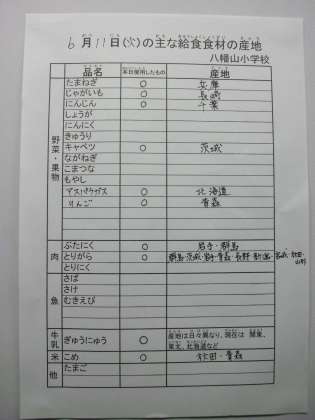 6月11日(火)の主な給食食材の産地
八幡山小学校
品名 本日使用したもの 産地
野菜・果物
たまねぎ ○ 兵庫
じゃがいも ○ 長崎
にんじん ○ 千葉
しょうが
にんにく
きゅうり
キャベツ ○ 茨城
ながねぎ
こまつな
もやし
アスパラガス ○ 北海道
りんご ○ 青森
肉
ぶたにく ○ 岩手・群馬
とりがら ○ 群馬・茨城・岩手・青森・長野・新潟・宮城・秋田・山形
とりにく
魚
さば
さけ
むきえび
牛乳
ぎゅうにゅう ○ 産地は日々異なり、現在は 関東、東北、北海道など
米
こめ ○ 秋田・青森
他
たまご